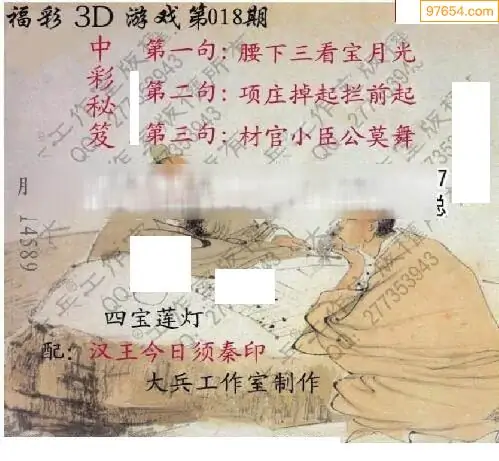 97654.com
福彩 3D 游戏第018期
中彩秘笈
第一句：腰下三看宝月光
第二句：项庄掉起拦前起
第三句：材官小臣公莫舞
7
总
月 14589
四宝莲灯
配：汉王今日须秦印
大兵工作室制作
兵工作室版权所有
QQ:277353943